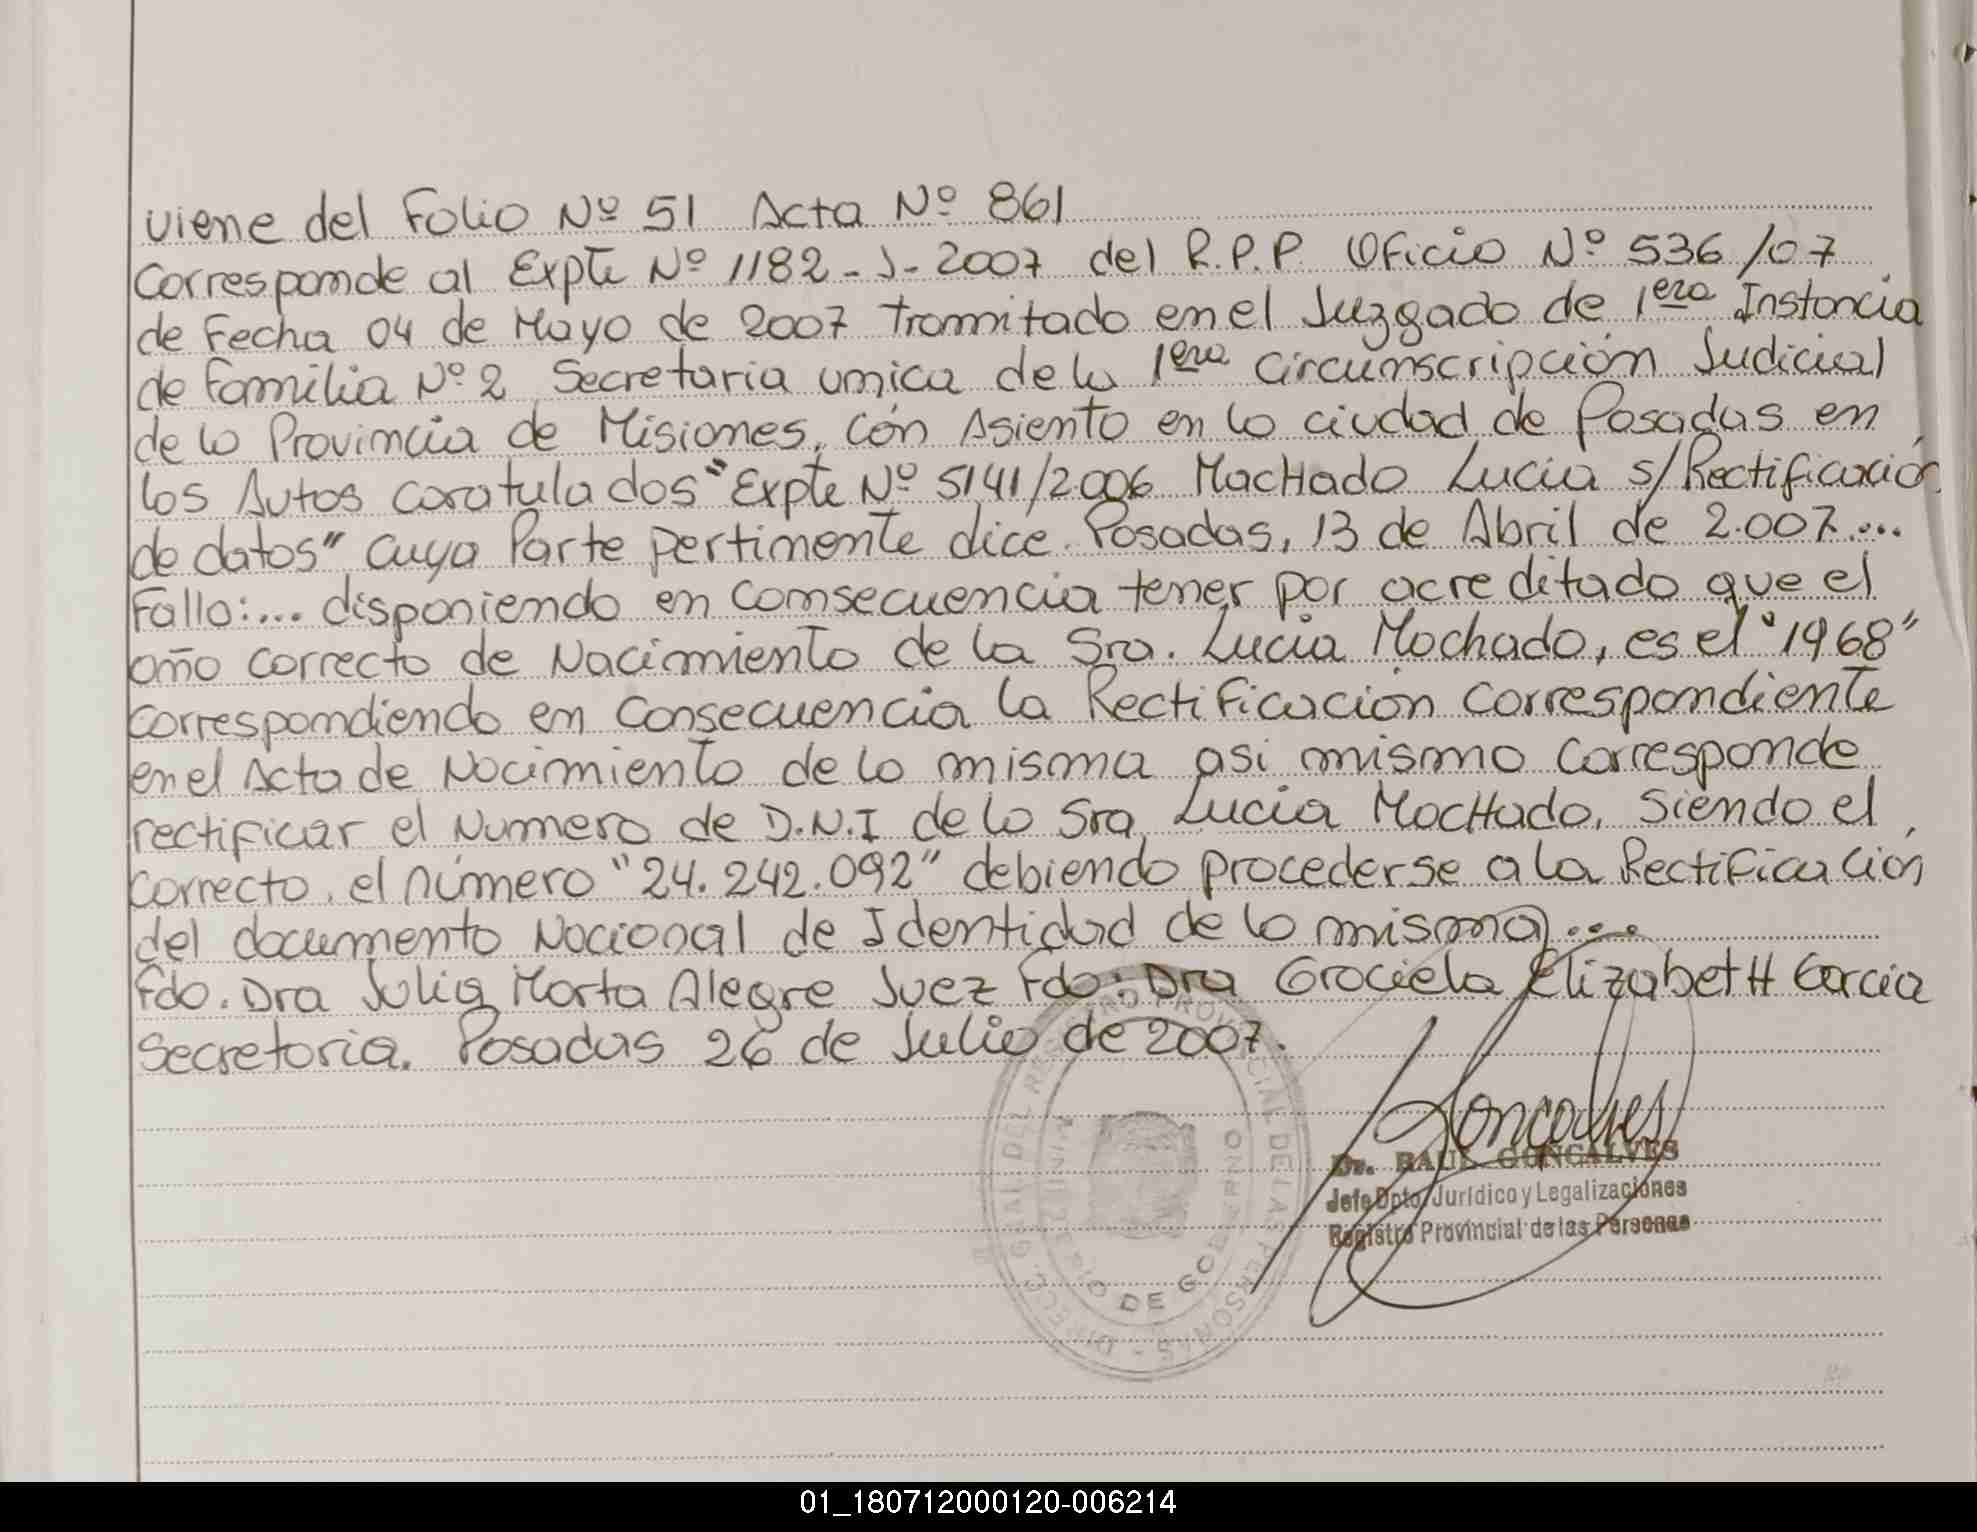 viene del Folio Nº 51 Acta Nº 861
Corresponde al Expte Nº 1182-J-2007 del R.P.P. Oficio Nº 536/07
de Fecha 04 de Mayo de 2007 Tramitado en el Juzgado de 1era Instancia
de Familia Nº 2 Secretaria unica de la 1era circunscripción Judicial
de la Provincia de Misiones, con Asiento en la ciudad de Posadas en
los Autos caratulados "Expte Nº 5141/2006 MacHado Lucia s/Rectificación
de datos" cuya Parte pertinente dice. Posadas, 13 de Abril de 2.007...
Fallo:... disponiendo en consecuencia tener por acreditado que el
año correcto de Nacimiento de la Sra. Lucia Machado, es el "1968"
correspondiendo en consecuencia la Rectificación correspondiente
en el Acta de Nacimiento de la misma asi mismo corresponde
rectificar el Numero de D.N.I de la Sra Lucia MacHado, siendo el
correcto, el número "24.242.092" debiendo procederse a la Rectificación
del documento Nacional de Identidad de la misma...
Fdo. Dra Julia Marta Alegre Juez Fdo: Dra Graciela ElizabetH Garcia
Secretaria. Posadas 26 de Julio de 2007.
Goncalves
Dr. RAUL GONCALVES
Jefe Dpto. Jurídico y Legalizaciones
Registro Provincial de las Personas
DIRECC. GRAL. DEL REGISTRO PROVINCIAL DE LAS PERSONAS -
MINISTERIO DE GOBIERNO
01_180712000120-006214